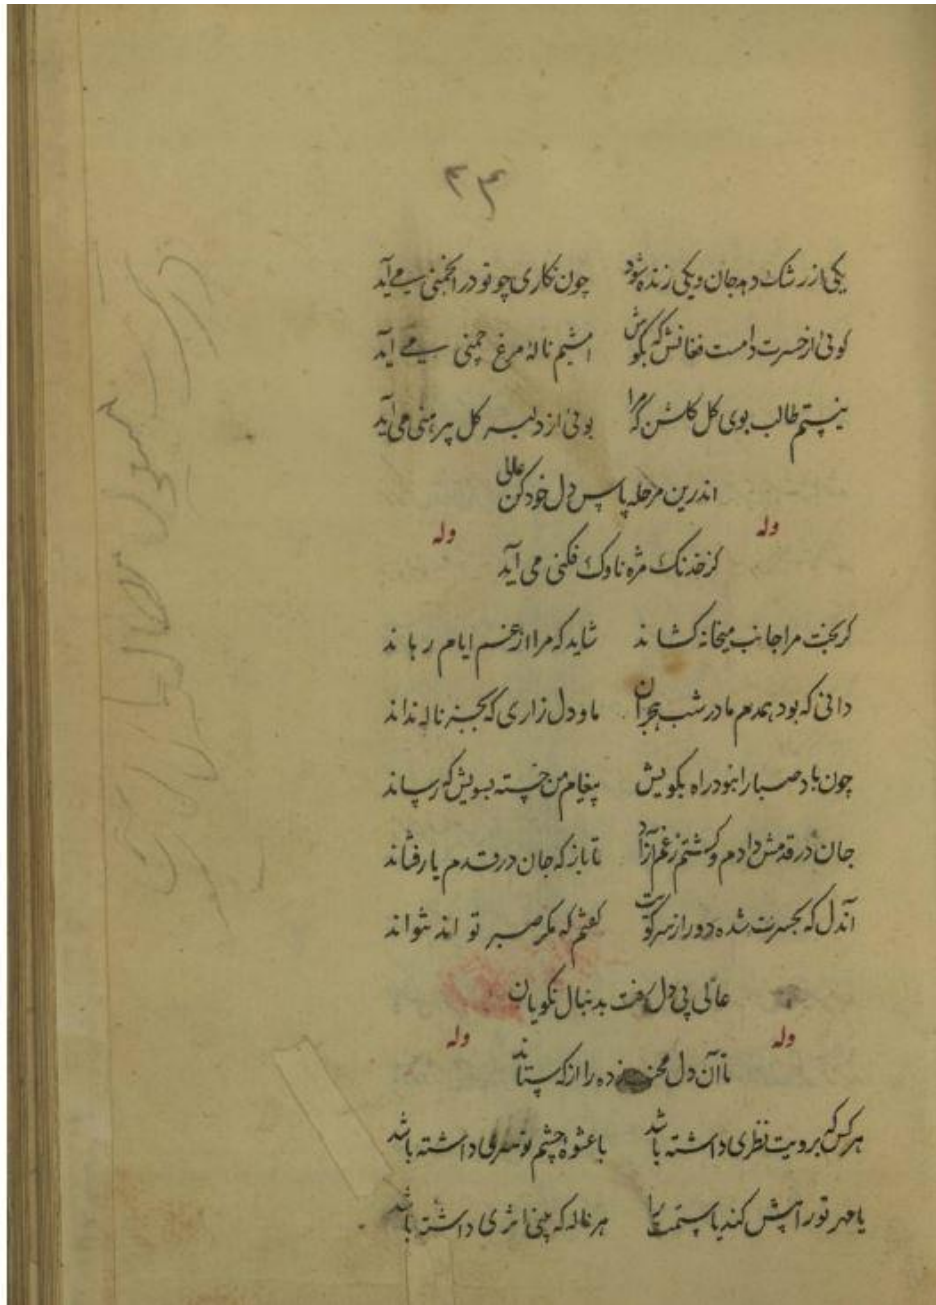 ۴۳
یکی از رشک دهد جان و یکی زنده شود چون نکاری چو تو در انجمنی می آید
کوئی از حسرت دامست فغانش که بکوش امشبم نالۀ مرغ چمنی می آید
نیستم طالب بوی کل کلشن که مرا بوئی از کل پیرهنی می آید
اندرین مرحله پاس دل خود کن عالی
وله وله
کز خدنک مژه ناوک فکنی می آید
کر بخت مرا جانب میخانه کشاند شاید که مرا از غم ایام رهاند
دانی که بود همدم ما در شب هجران ما و دل زاری که بجز ناله نداند
چون باد صبا را نبود راه بکویش پیغام من خسته بسویش که رساند
جان در قدمش دادم و کشتم ز غم آزاد تا باز که جان در قدم یار فشاند
آندل که بحسرت شده دور از سر کویت کفتم که مکر صبر تواند نتواند
عالی پی دل رفت بدنبال نکویان
وله وله
تا آن دل زده را از که ستاند
هر کس که برویت نظری داشته باشد با عشوۀ چشم تو سری داشته باشد
یا مهر تو را پیش کند یا ستمت را هر ناله که اثری داشته باشد